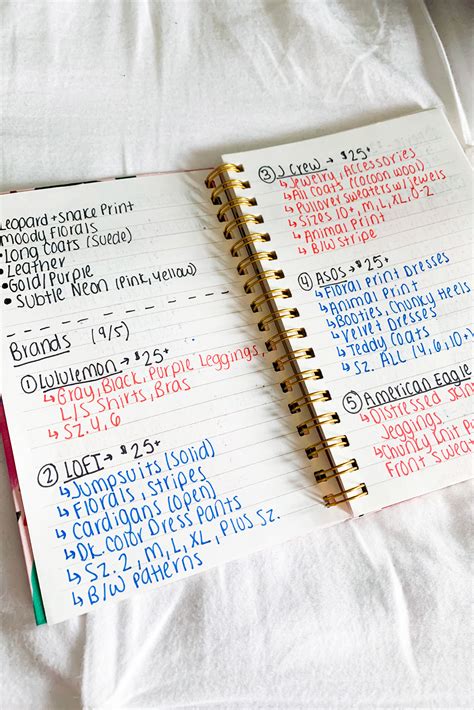 Leopard + Snake Print
Moody Florals
• Long Coats (Suede)
• Leather
• Gold/Purple
• Subtle Neon (Pink, Yellow)
Brands (9/5)
① Lululemon → $25+
↳ Gray, Black, Purple Leggings,
L/S Shirts, Bras
↳ Sz. 4, 6
② LOFT → $25+
↳ Jumpsuits (Solid)
↳ Florals, Stripes
↳ Cardigans (Open)
↳ Dk. Color Dress Pants
↳ Sz. 2, M, L, XL, Plus Sz.
↳ B/W Patterns
③ J Crew → $25+
↳ Jewelry, Accessories
↳ All Coats (Cocoon Wool)
↳ Pullover Sweaters w/ Jewels
↳ Sizes 10+, M, L, XL, 0-2
↳ Animal Print
↳ B/W Stripe
④ ASOS → $25+
↳ Floral Print Dresses
↳ Animal Print
↳ Booties, Chunky Heels
↳ Velvet Dresses
↳ Teddy Coats
↳ Sz. ALL (4, 6, 10+
⑤ American Eagle
↳ Distressed
Jeggings
↳ Chunky Knit
Front